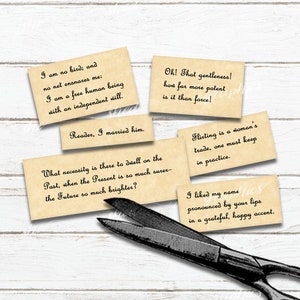 I am no bird; and
no net ensnares me:
I am a free human being
with an independent will.
Oh! That gentleness!
how far more potent
is it than force!
Reader, I married him.
Flirting is a woman's
trade, one must keep
in practice.
What necessity is there to dwell on the
Past, when the Present is so much surer-
the Future so much brighter?
I liked my name
pronounced by your lips
in a grateful, happy accent.